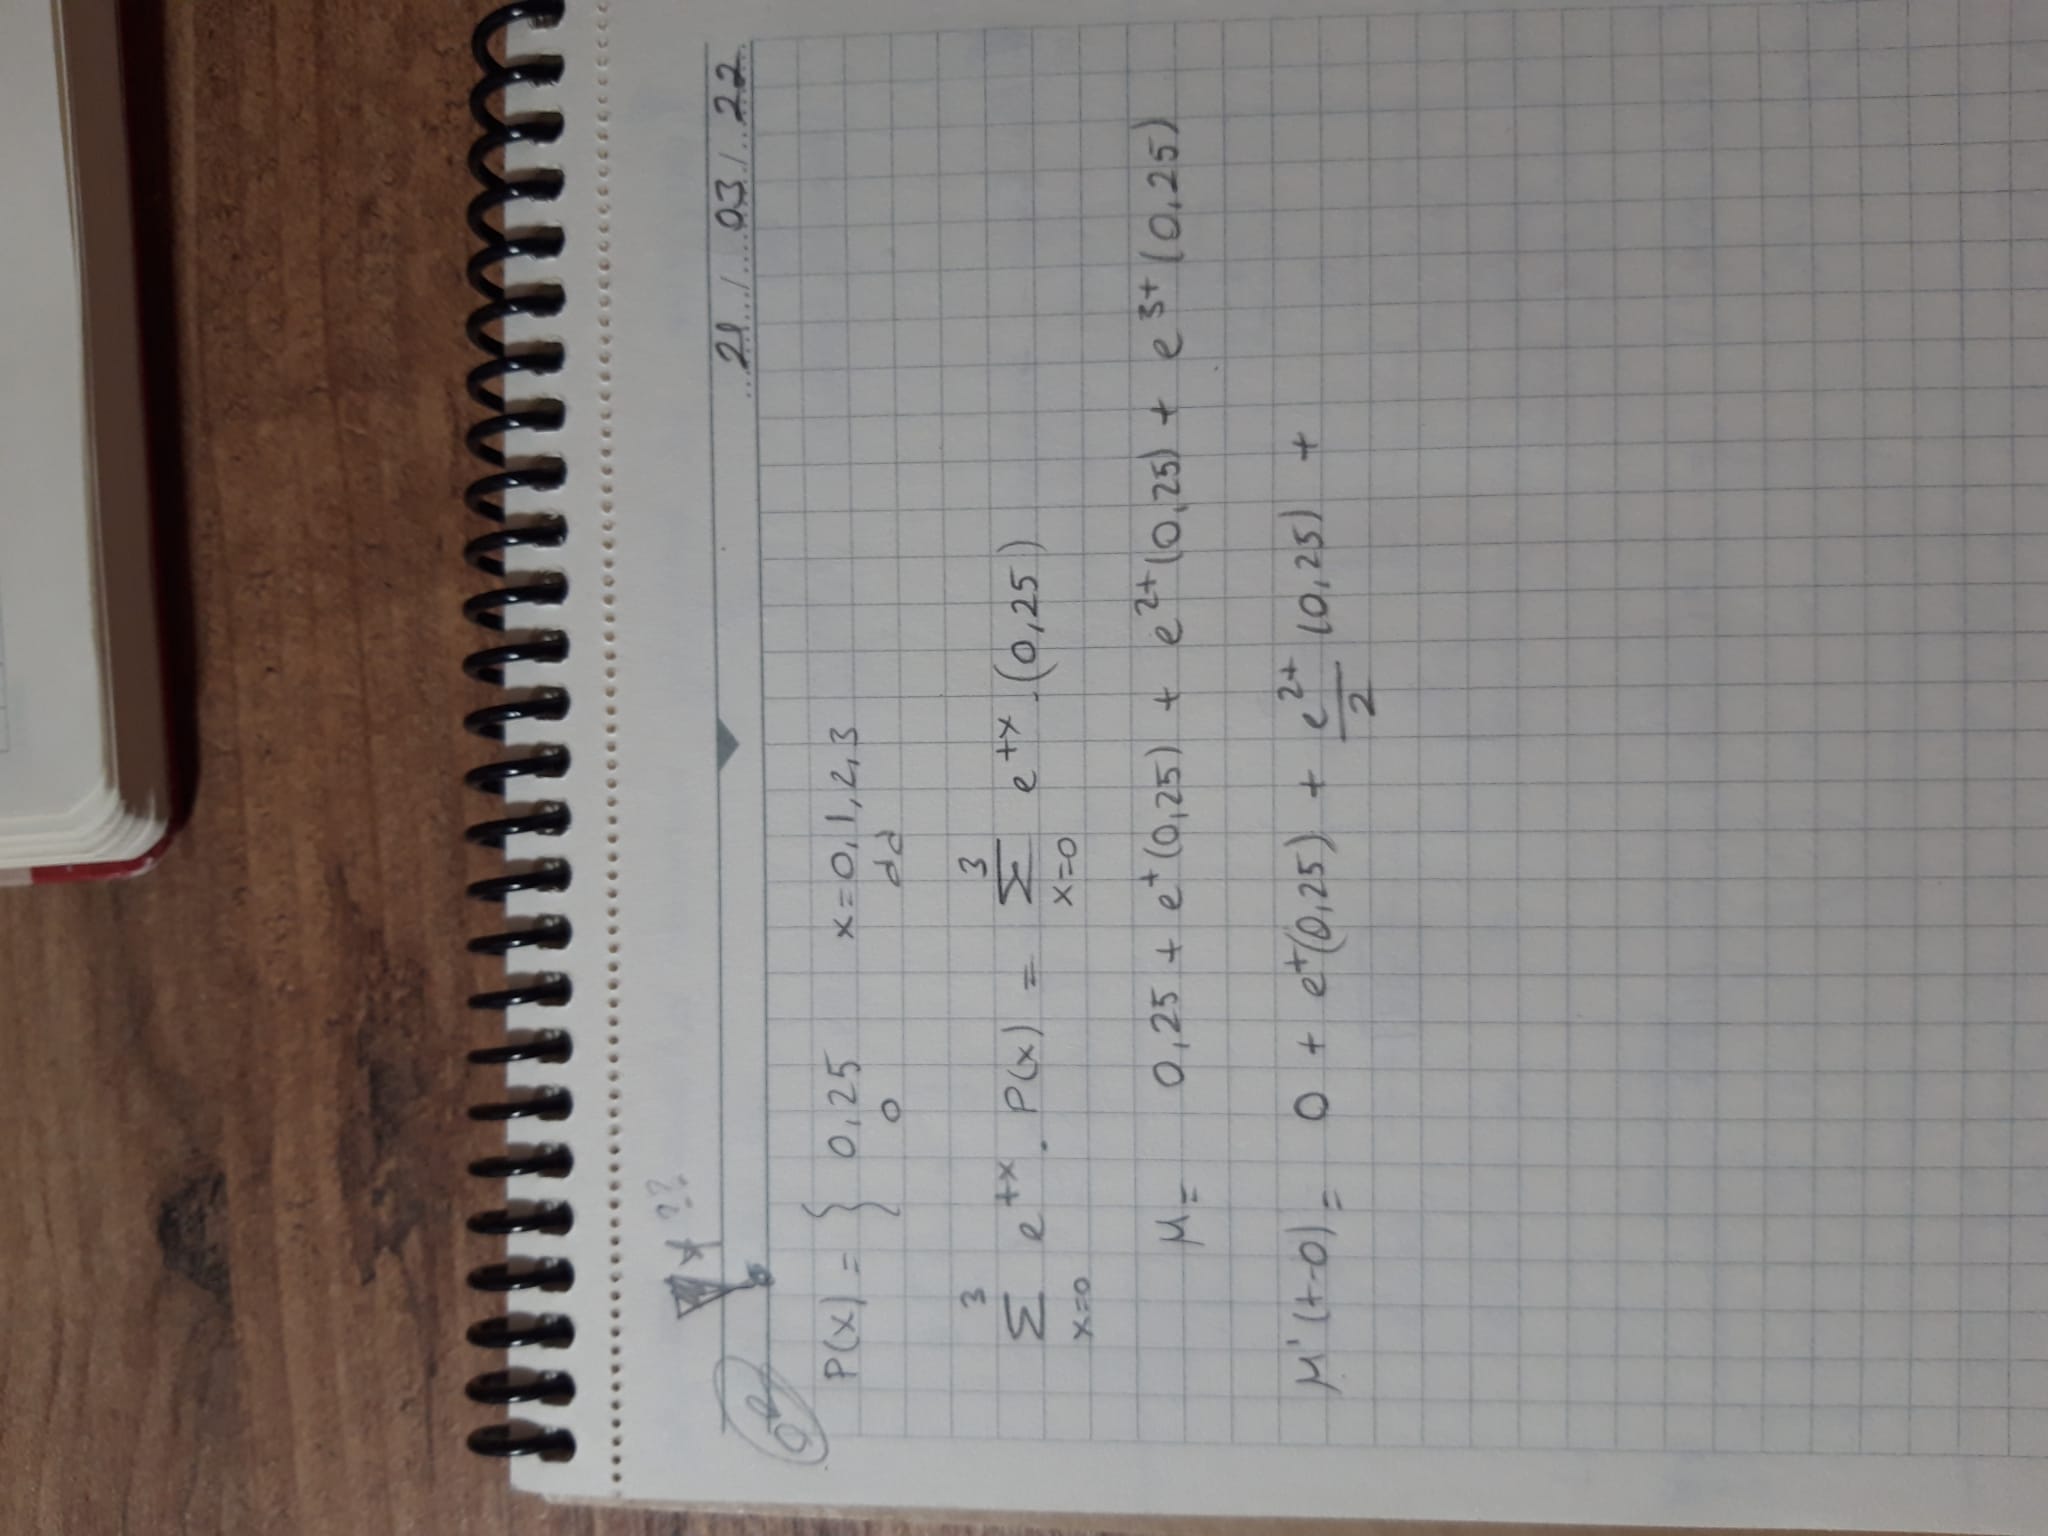 21 / 03 / 22
P(x) = { 0,25 x=0,1,2,3
0 dd
3 3
Σ e^tx . P(x) = Σ e^tx . (0,25)
x=0 x=0
M = 0,25 + e^t (0,25) + e^2t (0,25) + e^3t (0,25)
M' (t-0) = 0 + e^t (0,25) + e^2t/2 (0,25) +